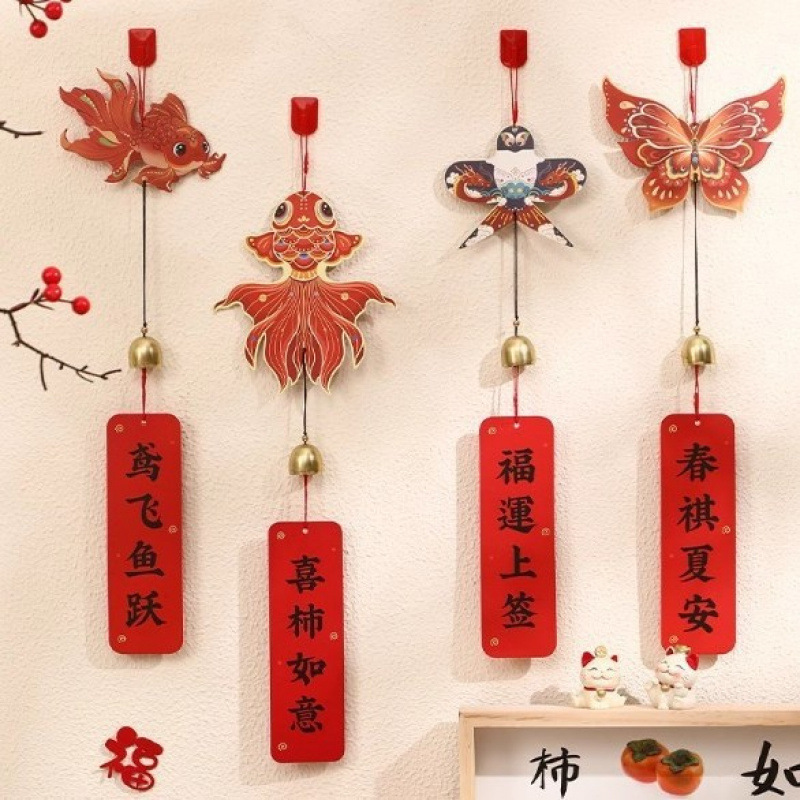 鸢飞鱼跃
喜柿如意
福運上签
春祺夏安
福
柿
如